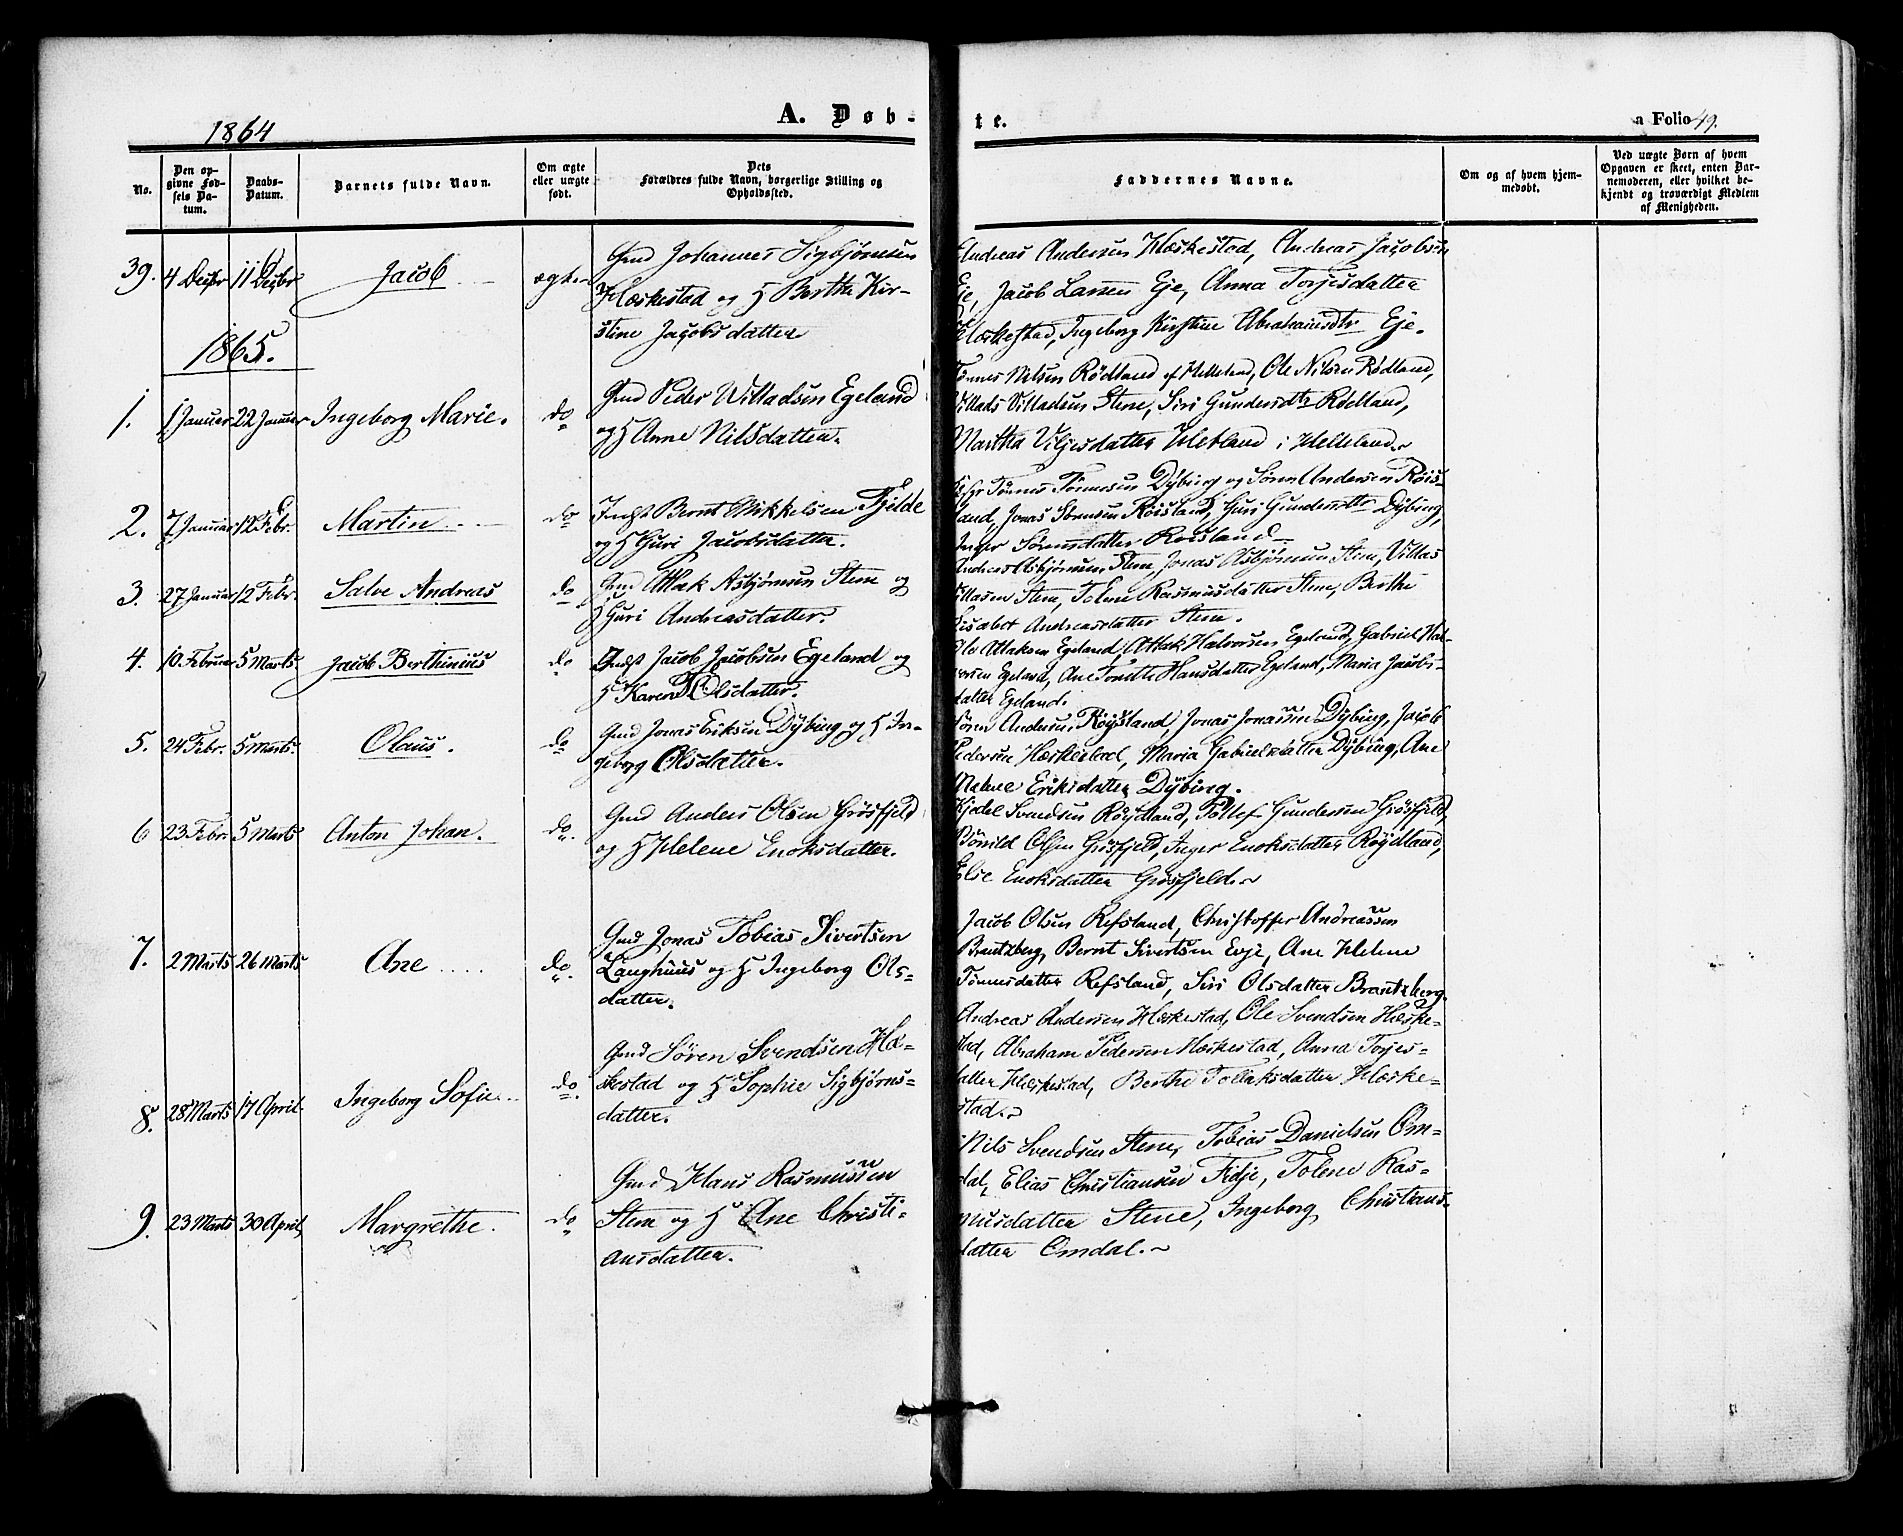 1864
A. Døb-
te.
a Folio 49.
No.
Den op-
givne Fød-
sels Da-
tum.
Daabs-
Datum.
Barnets fulde Navn.
Om ægte
eller uægte
født.
Dets
Forældres fulde Navn, borgerlige Stilling og
Opholdssted.
Faddernes Navne.
Om og af hvem hjem-
medøbt.
Ved uægte Børn af hvem
Opgaven er skeet, enten Bar-
nemoderen, eller hvilket be-
kjendt og troværdigt Medlem
af Menigheden.
39. 4 Decbr 11 Decbr Jacob ægte
Gmd Johannes Sigbjørnsen
Hæskestad og H Berthe Kir-
stine Jacobsdatter
Andreas Andersen Hæskestad, Andreas Jacobsen
Eje, Jacob Larsen Eje, Anna Torjesdatter
Hæskestad, Ingeborg Kirstine Abrahamsdtr Eje.
1865.
1. 1 Januar 22 Januar Ingeborg Marie. do
Gmd Peder Willadsen Egeland
og H Anne Nilsdatter.
Tønnes Nilsen Rødland af Helleland, Ole Nilsen Rødland,
Villads Villadsen Stene, Siri Gundersdtr Rødland,
Martha Viljesdatter Hetland i Helleland.
2. 7 Januar 12 Febr. Martin do
Indst Bernt Mikkelsen Fjelde
og H Guri Jacobsdatter.
Tønnes Tønnesen Dybing og Søren Andersen Røis-
land, Jonas Sørensen Røisland, H Guri Gundersdtr Dybing,
Inger Sørensdatter Røisland
3. 27 Januar 12 Febr. Salve Andreas do
Gmd Attak Asbjørnsen Stene og
H Guri Andreasdatter.
Andreas Asbjørnsen Stene, Jonas Asbjørnsen Stene, Villas
Villasen Stene, Tolene Rasmusdatter Stene, Berthe
Elisabet Andreasdatter Stene.
4. 10. Februar 5 Marts Jacob Berthinius do
Indst Jacob Jacobsen Egeland og
H Karen T Olsdatter.
Ole Attaksen Egeland, Attak Halvorsen Egeland, Gabriel Hal-
vorsen Egeland, Ane Tonette Hansdatter Egeland, Maria Jacobs-
datter Egeland.
5. 24 Febr. 5 Marts Olaus. do
Gmd Jonas Eriksen Dybing og H In-
geborg Olsdatter.
Søren Andersen Røysland, Jonas Jonassen Dybing, Jacob
Pedersen Hæskestad, Maria Gabrielsdatter Dybing, Ane
Malene Eriksdatter Dybing.
6 23 Febr 5 Marts Anton Johan. do.
Gmd Anders Olsen Grøsfjeld
og H Helene Enoksdatter.
Kjedel Svendsen Røydland, Tollef Gundersen Grøsfjeld,
Bønild Olsen Grøsfjeld, Inger Enoksdatter Røydland,
Else Enoksdatter Grøsfjeld.
7. 2 Marts 26 Marts Ane do.
Gmd Jonas Tobias Sivertsen
Langhuus og H Ingeborg Ols-
datter.
Jacob Olsen Refsland, Christoffer Andreassen
Brautzberg, Bernt Sivertsen Evje, Ane Helene
Tønnesdatter Refsland, Siri Olsdatter Brautzberg.
8. 28 Marts 17 April Ingeborg Sofie do.
Gmd Søren Svendsen Hæ-
skestad og H Sophie Sigbjørns-
datter.
Andreas Andersen Hæskestad, Ole Svendsen Hæske-
stad, Abraham Pedersen Hæskestad, Anna Torjes-
datter Hæskestad, Berthe Tollaksdatter Hæske-
stad.
9. 23 Marts 30 April Margrethe. do
Gmd Hans Rasmussen
Stene og H Ane Christi-
ansdatter.
Nils Svendsen Stene, Tobias Danielsen Om-
dal, Elias Christiansen Fidje, Tolene Ras-
musdatter Stene, Ingeborg Christians-
datter Omdal.